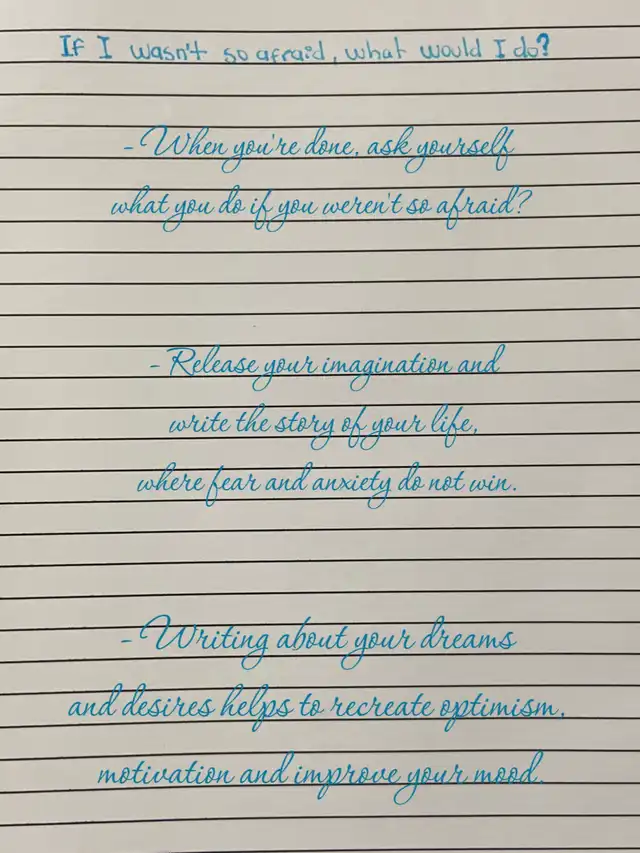 If I wasn't so afraid, what would I do?
- When you're done, ask yourself
what you do if you weren't so afraid?
- Release your imagination and
write the story of your life,
where fear and anxiety do not win.
- Writing about your dreams
and desires helps to recreate optimism,
motivation and improve your mood.